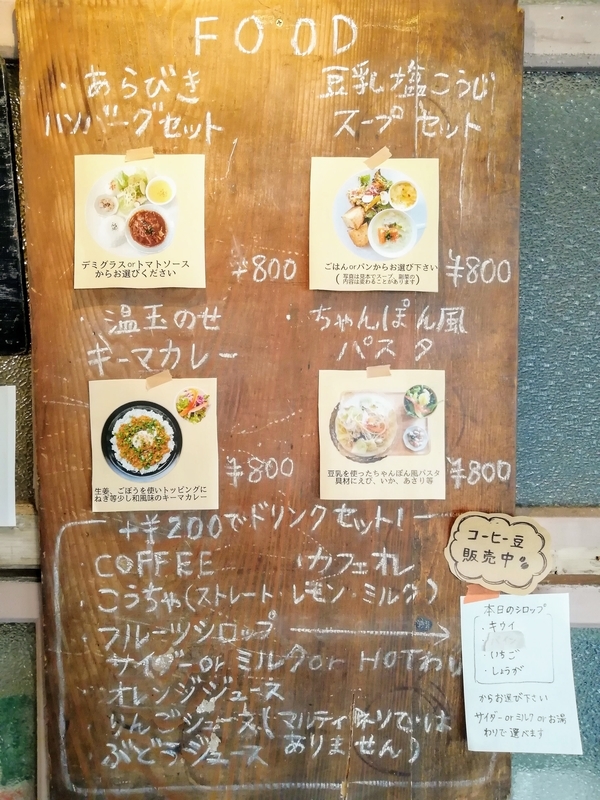 FOOD
・あらびき
ハンバーグセット
デミグラスorトマトソース
からお選びください
¥800
豆乳塩こうじ
スープセット
ごはんorパンからお選び下さい
(写真は見本でスープ、副菜の
内容は変わることがあります)
¥800
・温玉のせ
キーマカレー
生姜、ごぼうを使いトッピングに
ねぎ等少し和風味のキーマカレー
¥800
・ちゃんぽん風
パスタ
豆乳を使ったちゃんぽん風パスタ
具材にえび、いか、あさり等
¥800
+¥200でドリンクセット!
・COFFEE ・カフェオレ
・こうちゃ(ストレート・レモン・ミルク)
・フルーツシロップ
サイダー or ミルク or HOTわり
・オレンジジュース
・りんごジュース(マルティネリでは
ありません)
・ぶどうジュース
コーヒー豆
販売中
本日のシロップ
・キウイ
・いちご
・しょうが
からお選び下さい
サイダー or ミルク or お湯
わりで選べます